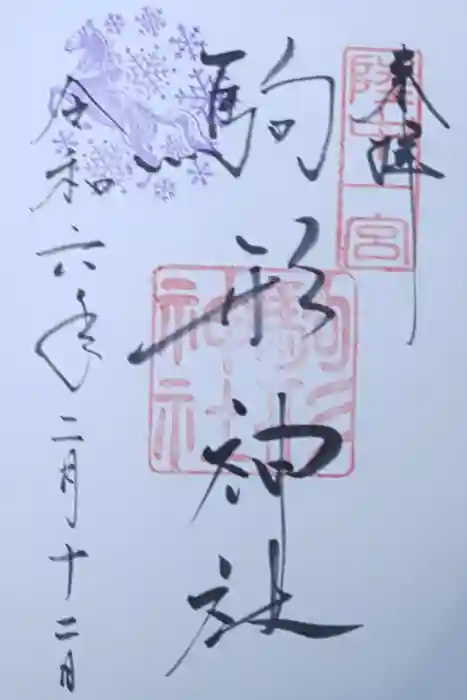 奉拝
陸中一宮
駒形神社
駒形神社
令和六年二月十二日